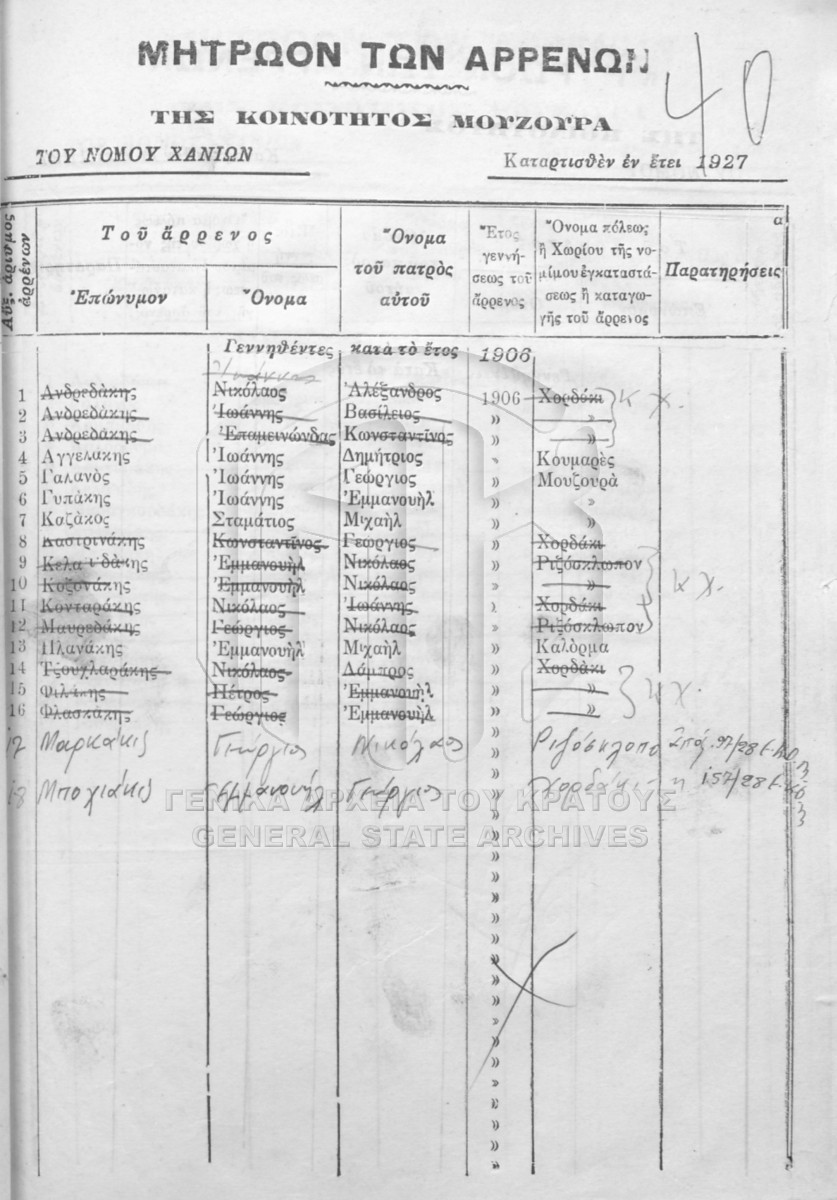 ΜΗΤΡΩΟΝ ΤΩΝ ΑΡΡΕΝΩΝ
40
ΤΗΣ ΚΟΙΝΟΤΗΤΟΣ ΜΟΥΖΟΥΡΑ
ΤΟΥ ΝΟΜΟΥ ΧΑΝΙΩΝ Καταρτισθὲν ἐν ἔτει 1927
α
Αὔξ. ἀριθμὸς ἀρρένων
Τοῦ ἄρρενος
Ἐπώνυμον Ὄνομα
Ὄνομα τοῦ πατρὸς αὐτοῦ
Ἔτος γεννήσεως τοῦ ἄρρενος
Ὄνομα πόλεως ἢ Χωρίου τῆς νομίμου ἐγκαταστάσεως ἢ καταγωγῆς τοῦ ἄρρενος
Παρατηρήσεις
Γεννηθέντες κατὰ τὸ ἔτος 1906
1 Ἀνδρεδάκης Νικόλαος Ἀλέξανδρος 1906 Χορδάκι Κ Χ.
2 Ἀνδρεδάκης Ἰωάννης Βασίλειος » »
3 Ἀνδρεδάκης Ἐπαμεινώνδας Κωνσταντῖνος » »
4 Ἀγγελάκης Ἰωάννης Δημήτριος » Κουμαρὲς
5 Γαλανὸς Ἰωάννης Γεώργιος » Μουζουρᾶ
6 Γυπάκης Ἰωάννης Ἐμμανουὴλ » »
7 Καζάκος Σταμάτιος Μιχαὴλ » »
8 Καστρινάκης Κωνσταντῖνος Γεώργιος » Χορδάκι
9 Κελαϊδὰκης Ἐμμανουὴλ Νικόλαος » Ριζόσκλωπον
10 Κοζονάκης Ἐμμανουὴλ Νικόλαος » » Κ Χ.
11 Κονταράκης Νικόλαος Ἰωάννης » Χορδάκι
12 Μαυρεδάκης Γεώργιος Νικόλαος » Ριζόσκλωπον
13 Πλανάκης Ἐμμανουὴλ Μιχαὴλ » Καλόρμα
14 Τζουχλαράκης Νικόλαος Λάμπρος » Χορδὰκι
15 Φιλάκης Πέτρος Ἐμμανουὴλ » » Κ Χ.
16 Φλασκάκης Γεώργιος Ἐμμανουὴλ » »
17 Μαρκάκις Γεώργιος Νικόλαος » Ριζόσκλοπο 97/28
18 Μποχιάκις Εμμανουήλ Γεώργιος » Χορδάκι 157/28
ΓΕΝΙΚΑ ΑΡΧΕΙΑ ΤΟΥ ΚΡΑΤΟΥΣ
GENERAL STATE ARCHIVES